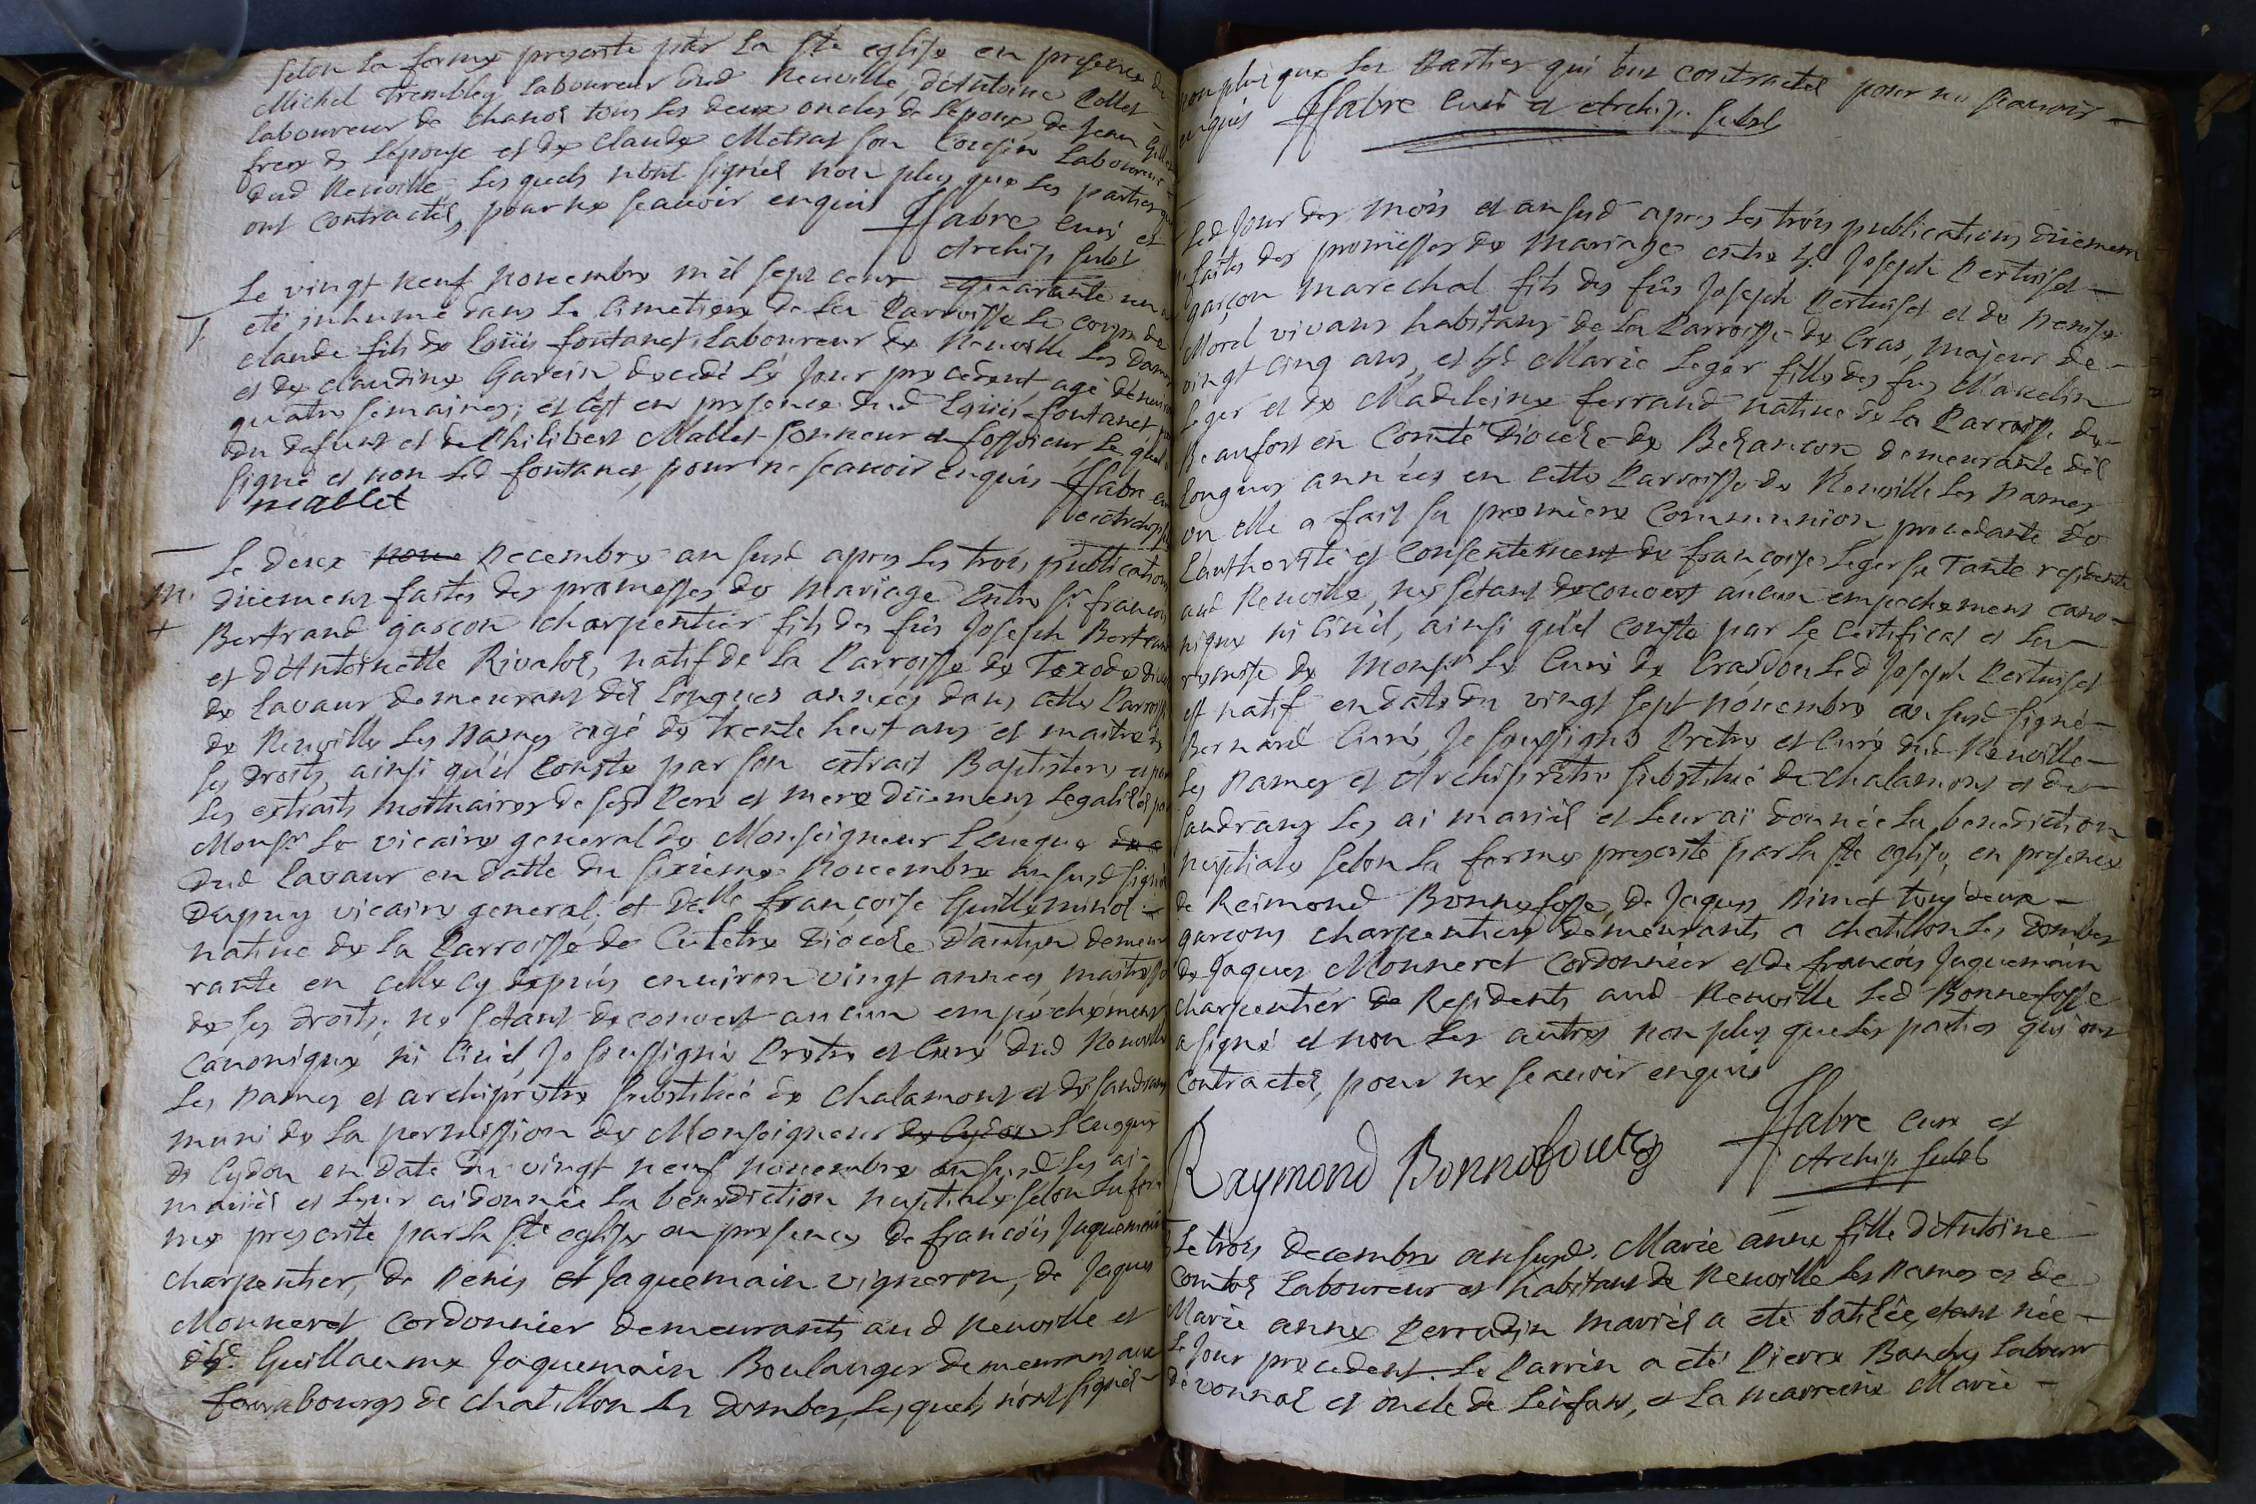 selon la forme prescrite par la ste eglise en presence de
Michel Trembley laboureur dud Neuville, d'Antoine Collet
laboureur de Chanoz tous les deux oncles de l'epoux, de Jean
frere de l'epouse et de Claude Metrat son Cousin laboureur
dud Neuville, lesquels n'ont signéz non plus que les parties qui
ont contractéz, pour ne scavoir enquis Ffabre curé et
Archip. subst
Le vingt neuf novembre mil sept cent quarante un a
T.
eté inhumé dans le cimetiere de la Parroisse le corps de
claude fils de Loüis fontanet laboureur de Neuville les Dames
et de claudine Garcin decedé le jour precedent agé d'environ
quatre semaines; et c'est en presence dud Loüis fontanet pere
du defunt et de Philibert Mallet sonneur et fossoieur, le quel a
signé et non led fontanet, pour ne scavoir enquis Ffabre curé
mallet
et archip st
Le deux nove Decembre an susd apres les trois publications
m.
düement faites des promesses de mariage Entre Sr. francois
+
Bertrand garcon charpentier fils des fûs Joseph Bertrand
et d'Antoinette Rivaloz, natif de la Parroisse de Texode diocese
de Lavaur demeurant déz longues années dans cette Parroisse
de Neuville les Dames agé de trente huit ans et maitre de
ses droits, ainsi qu'il conste par son extrait Baptistere et par
les extraits mortuaires de sesd Pere et mere düement legaliséz par
Monsr. le vicaire general de Monseigneur l'Eveque du d
Dud Lavaur en datte du sixieme Novembre an susd signé
Dupuy vicaire general; et Delle francoise Guilleminot
native de la Parroisse de Culetre Diocèse d'autun demeu
rante en celle cy depuis environ vingt années, maitresse
de ses droits; ne s'etant decouvert aucun empechement
Canonique, ni Civil, Je soussigné Pretre et Curé dud Neuville
les Dames et archipretre substitué de chalamont et de sandrans
muni de la permission de Monseigneur de Lydon l'Eveque
de Lydon en date du vingt neuf novembre an susd les ai
mariéz et leur ai donnée la benediction nuptiale selon la for
me prescrite par la ste eglise en presence de francois Jaquemain
charpentier, de Denis et Jaquemain vigneron, de Jaques
Monneret Cordonnier demeurants aud Neuville et
de Sr. Guillaume Jaquemain Boulanger demeurant aux
fauxbourgs de chatillon les dombes, lesquels n'ont signéz
non plus que les Parties qui ont contractéz pour ne scavoir
enquis Ffabre curé et Archip. subst
Led Jour des mois et an susd apres les trois publications düement
faites des promesses de mariage entre Sr. Joseph Pertuiset
garcon marechal fils des fûs Joseph Pertuiset et de Denise
Morel vivans habitans de la Parroisse de Cras, majeur de
vingt cinq ans, et hte Marie Leger fille des fus Marcelin
Leger et de Madeleine ferrand native de la Parroisse de
Beaufort en Comté Diocèse de Bezancon, demeurante déz
longues années en cette Parroisse de Neuville les Dames
ou elle a fait sa premiere communion, procedante de
l'authorité et consentement de francoise Leger sa Tante residente
aud Neuville, ne s'etant decouvert aucun empechement cano
nique ni civil, ainsi qu'il conste par le certificat et la
remise de Monsr. le Curé de Cras dou led Joseph Pertuiset
est natif en date du vingt sept novembre an susd signé
Bernard Curé, Je soussigné Pretre et Curé dud Neuville
les Dames et Archiprêtre substitué de chalamont et de
sandrans les ai mariéz et leur ai donnée la benediction
nuptiale selon la forme prescrite par la ste eglise, en presence
de Reimond Bonnefosse, de Jaques Dimet tous deux
garcons charpentiers demeurants a chatillon les Dombes
de Jaques Monneret Cordonnier et de francois Jaquemain
charpentier de Residents aud Neuville led Bonnefosse
a signé et non les autres non plus que les parties qui ont
contractéz, pour ne scavoir enquis
Ffabre curé et
Archip. subst
Raymond Bonnofouts
Le trois decembre an susd. Marie anne fille d'Antoine
Comtoz laboureur et habitant de Neuville les Dames et de
Marie anne Perradin mariéz a eté batisée etant née
le Jour precedent. Le Parrin a eté Pierre Bandy laboureur
de vonnaz et oncle de l'enfant, et la marreine Marie